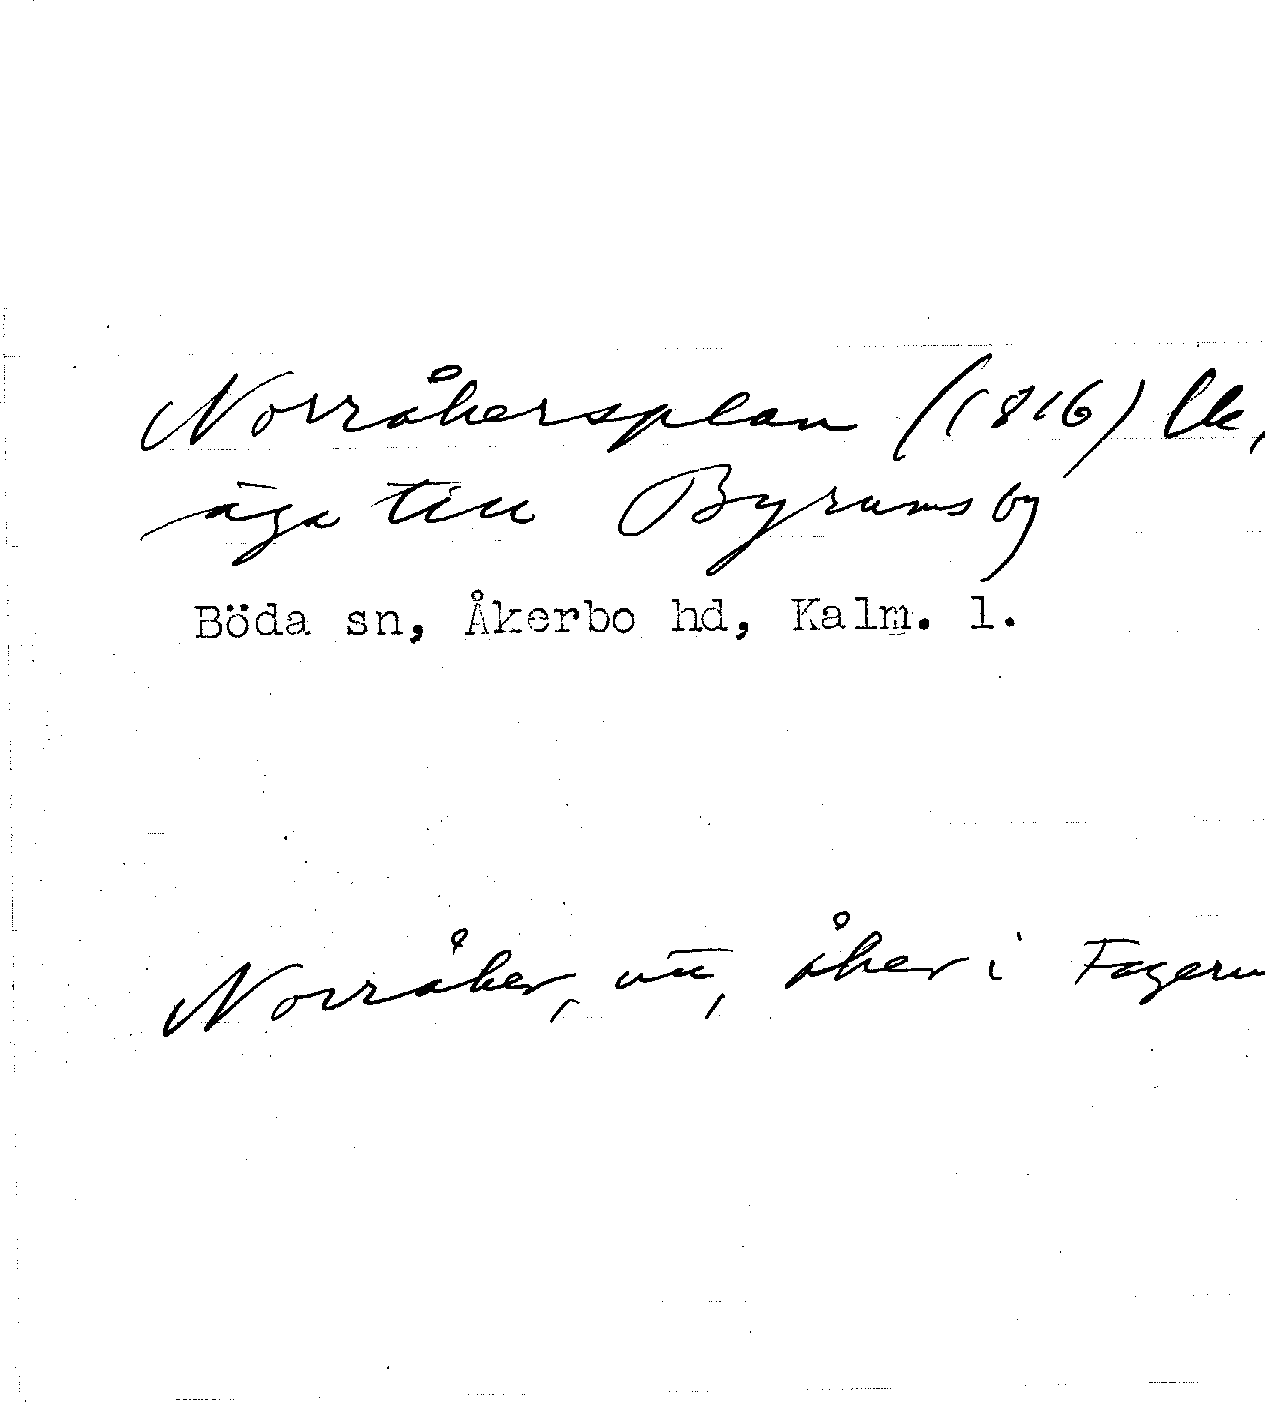 Norråkersplan (1816)
äga till Byrums by
Böda sn, Åkerbo hd, Kalm. l.
Norråker, åker i